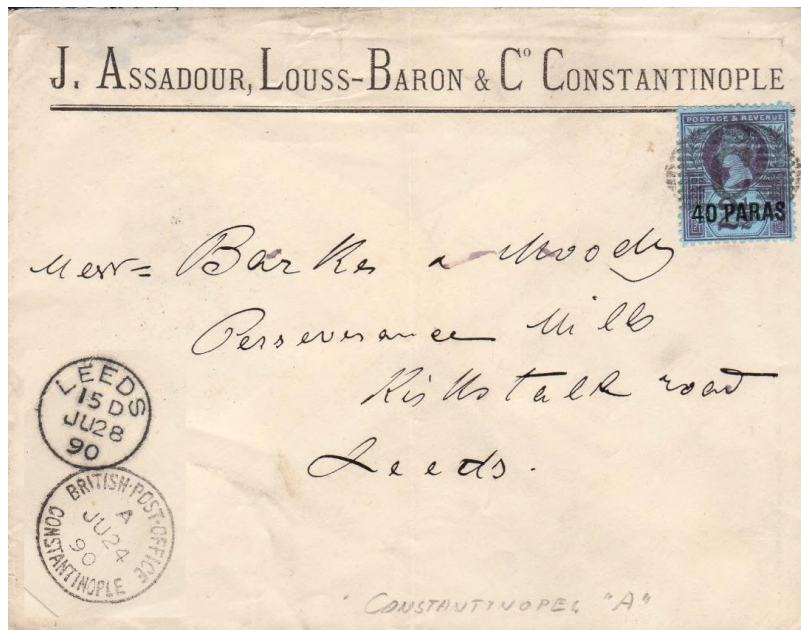 J. ASSADOUR, LOUSS-BARON & Cº CONSTANTINOPLE
POSTAGE & REVENUE
40 PARAS
Messrs Barker & Moody
Perseverance Mills
Kirkstall road
Leeds.
LEEDS
15 D
JU 28
90
BRITISH·POST·OFFICE
A
JU 24
90
CONSTANTINOPLE
CONSTANTINOPEL "A"